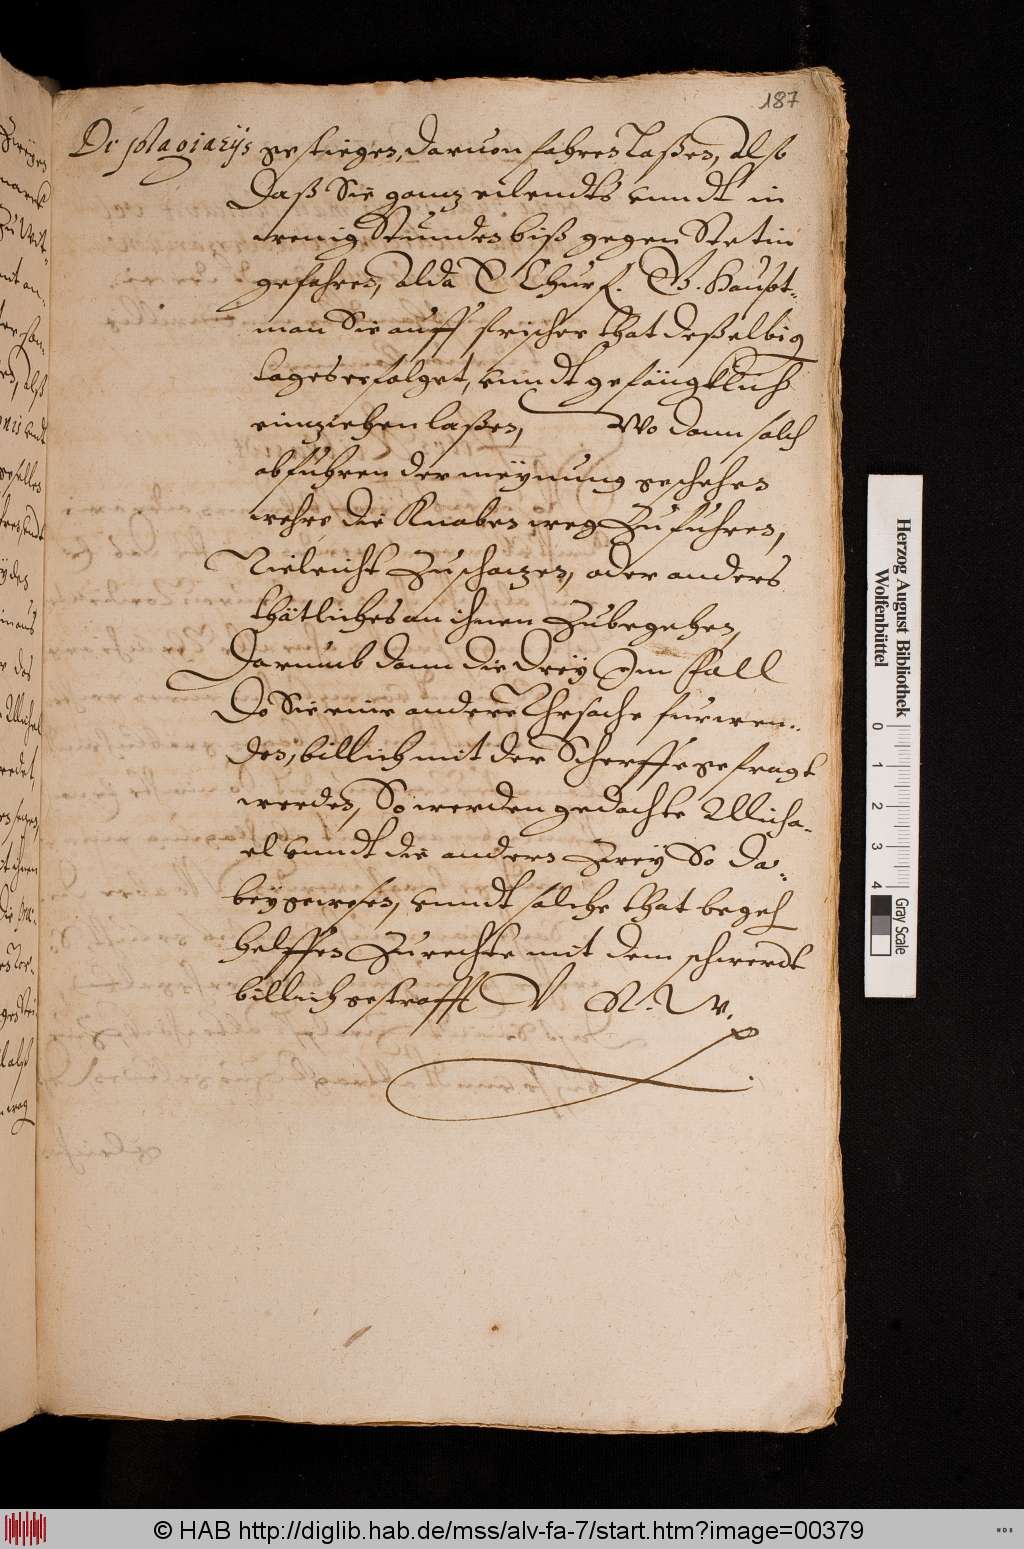 187
De plagiarijs gestiegen, daruon fahren laßen, also
Daß Sie ganz eilendts vnndt in
wenig Stunden biß gegen Stetin
gefahren, alda E Churf. G. Haupt-
man Sie auff frischer that deßelbig
tages erfolget, vnndt gefängklich
einziehen laßen, Wo dann solch
abfuhren der meÿnung geschehen
wehre die Knaben weg Zufuhren,
Vieleicht Zuschazen, oder anders
thätliches an ihnen Zubegehen,
Darumb dann die dreÿ Im fall
Do Sie eine andere Vhrsache furwen-
den, billich mit der Scherffe gefragt
werden, So werden gedachte Micha-
el vnndt die andern Zweÿ So da-
beÿ gewesen, vnndt solche that begeh
helffen Zu rechte mit dem schwerdt
billich gestrafft V R. W.
Herzog August Bibliothek
Wolfenbüttel
0 1 2 3 4
Gray Scale
© HAB http://diglib.hab.de/mss/alv-fa-7/start.htm?image=00379